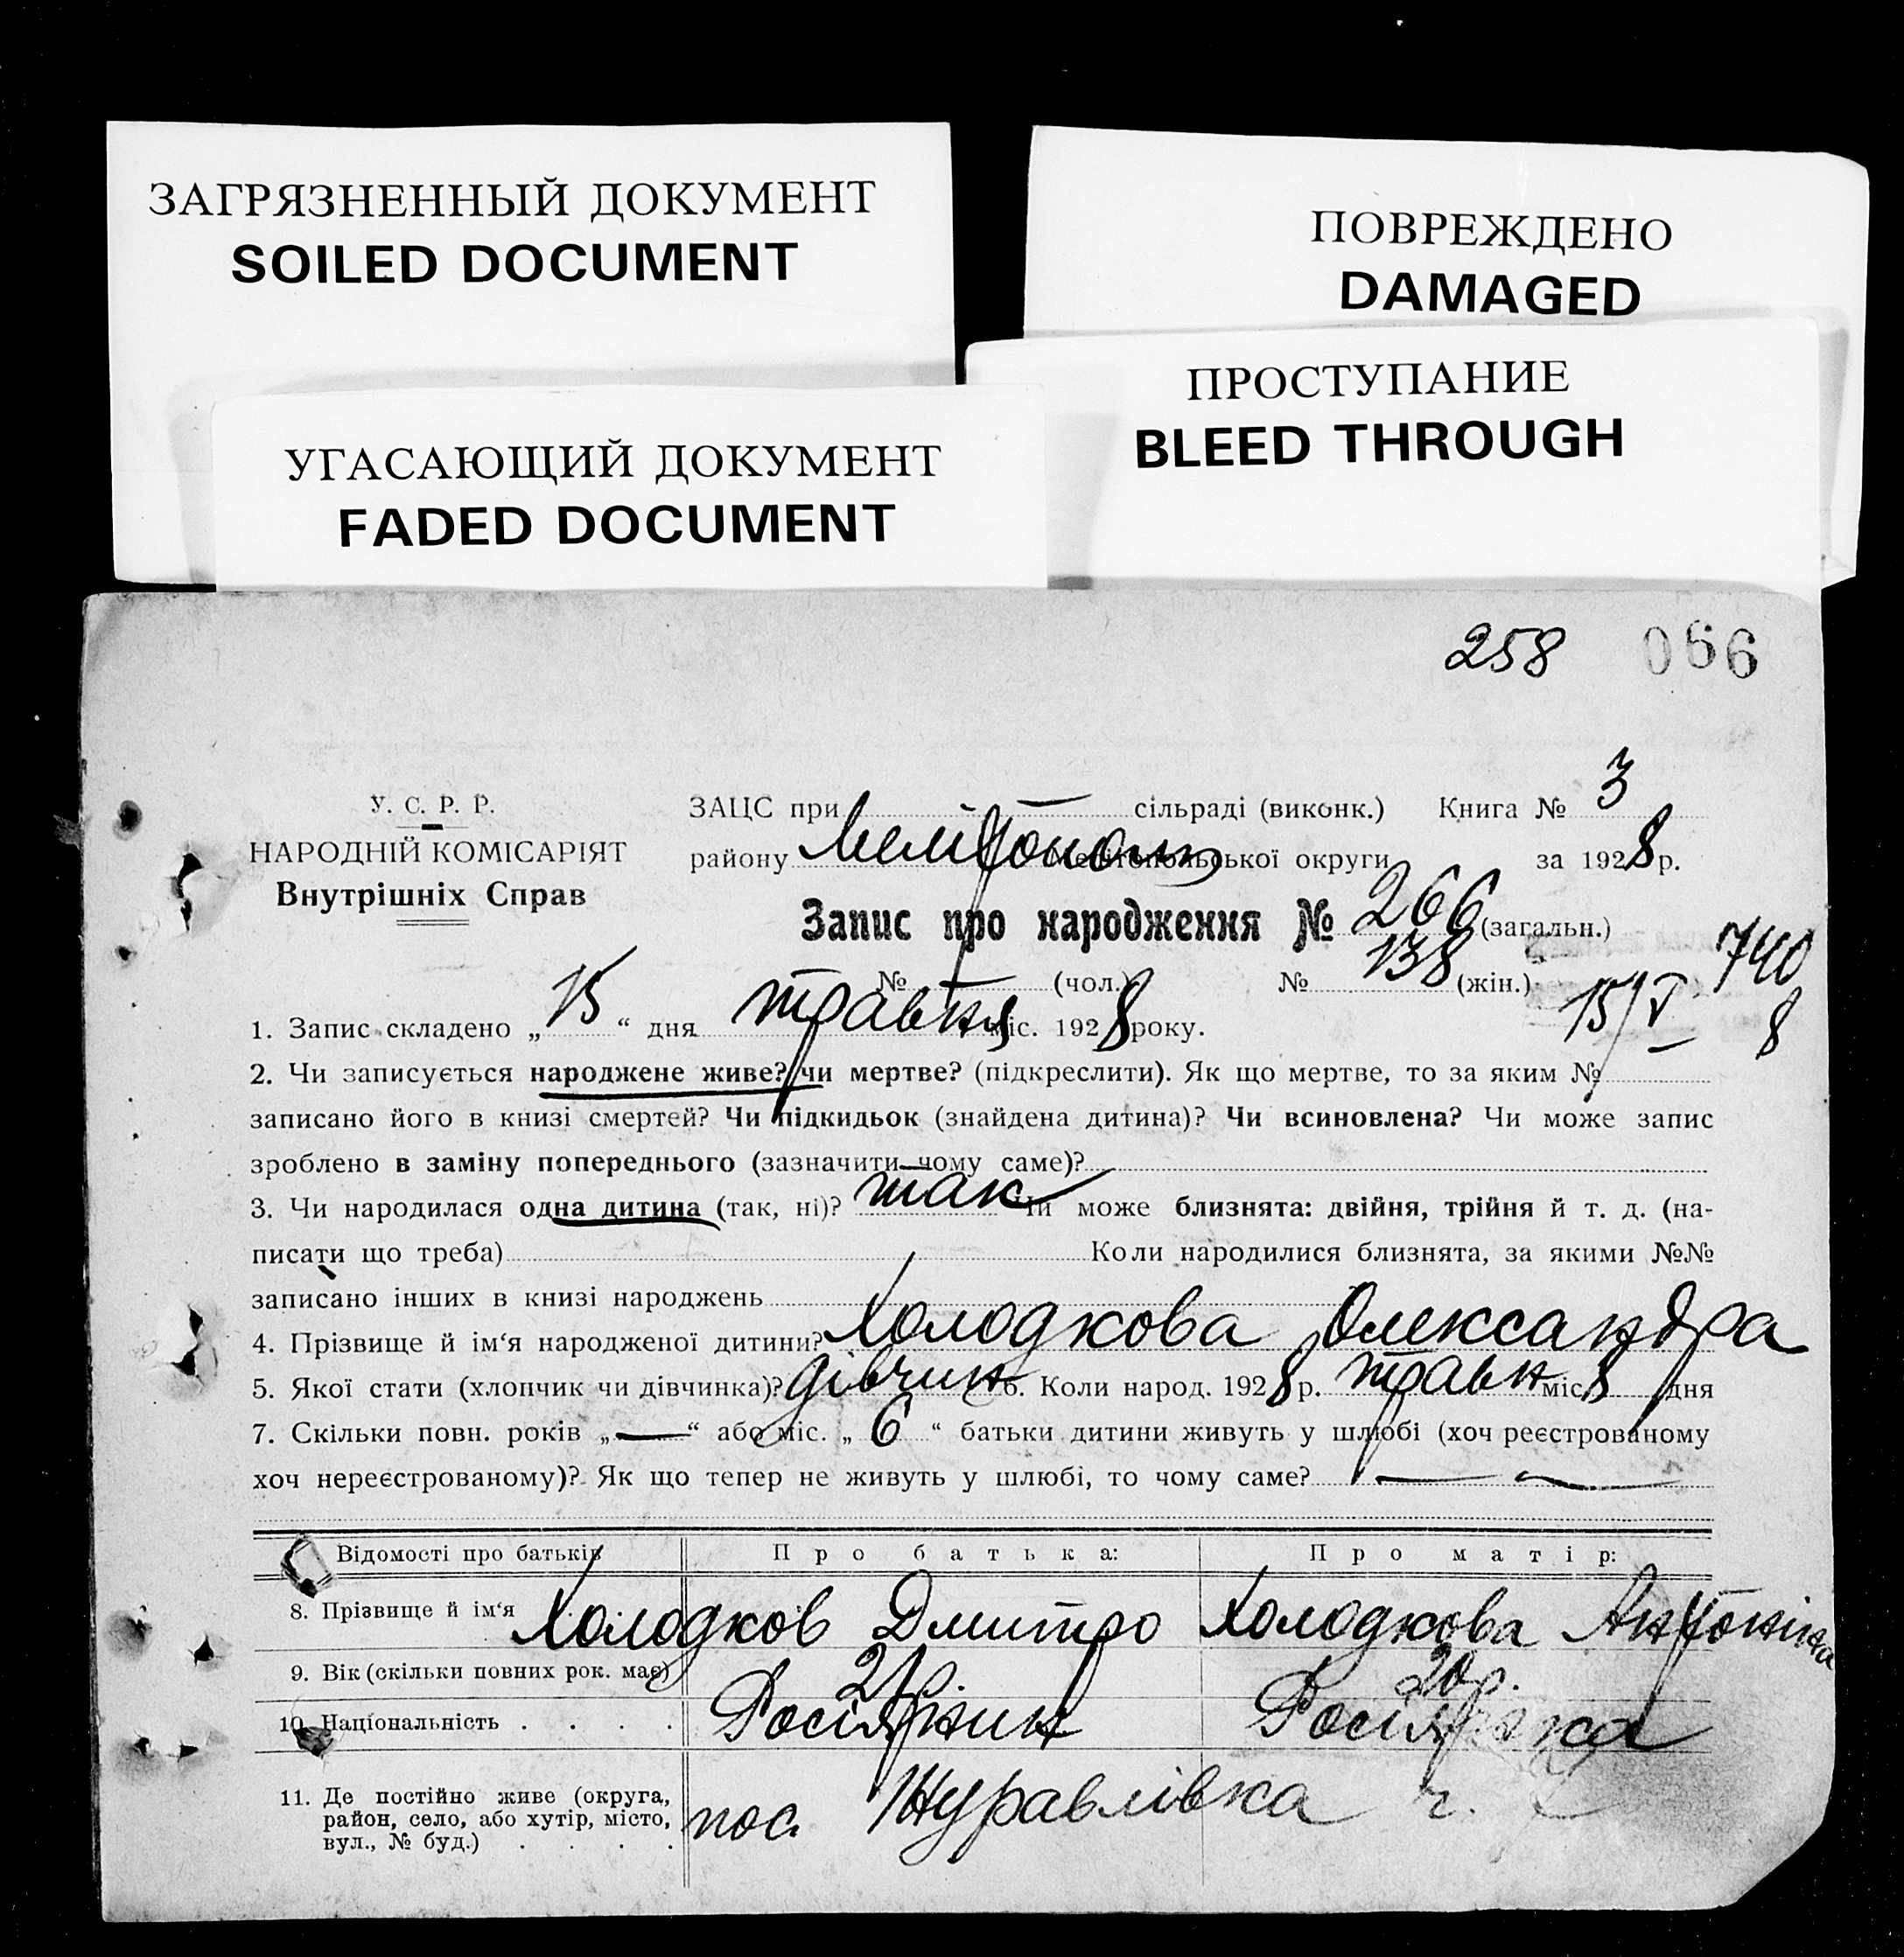 ЗАГРЯЗНЕННЫЙ ДОКУМЕНТ
SOILED DOCUMENT
ПОВРЕЖДЕНО
DAMAGED
ПРОСТУПАНИЕ
BLEED THROUGH
УГАСАЮЩИЙ ДОКУМЕНТ
FADED DOCUMENT
258 066
У. С. Р. Р.
НАРОДНІЙ КОМІСАРІЯТ
Внутрішніх Справ
ЗАЦС при — сільраді (виконк.) Книга № 3
району Мелітополь Мелітопольської округи за 1928 р.
Запис про народження № 266 (загальн.)
№ (чол.) № 138 (жін.) 740
15/V 8
1. Запис складено „15“ дня травня міс. 1928 року.
2. Чи записується народжене живе? чи мертве? (підкреслити). Як що мертве, то за яким №
записано його в книзі смертей? Чи підкидьок (знайдена дитина)? Чи всиновлена? Чи може запис
зроблено в заміну попереднього (зазначити чому саме)?
3. Чи народилася одна дитина (так, ні)? так Чи може близнята: двійня, трійня й т. д. (на-
писати що треба) Коли народилися близнята, за якими №№
записано інших в книзі народжень
4. Прізвище й ім‘я народженої дитини? Холодкова Олександра
5. Якої стати (хлопчик чи дівчинка)? дівчин 6. Коли народ. 1928 р. травн міс. 8 дня
7. Скільки повн. років „—“ або міс. „6“ батьки дитини живуть у шлюбі (хоч реєстрованому
хоч нереєстрованому)? Як що тепер не живуть у шлюбі, то чому саме? — —
Відомості про батьків Про батька: Про матір:
8. Прізвище й ім‘я Холодков Дмитро Холодкова Антоніна
9. Вік (скільки повних рок. має) 21 р. 20 р.
10. Національність . . . . Росіянин Росіянка
11. Де постійно живе (округа,
район, село, або хутір, місто,
вул., № буд.) . . . . пос. Журавлівка